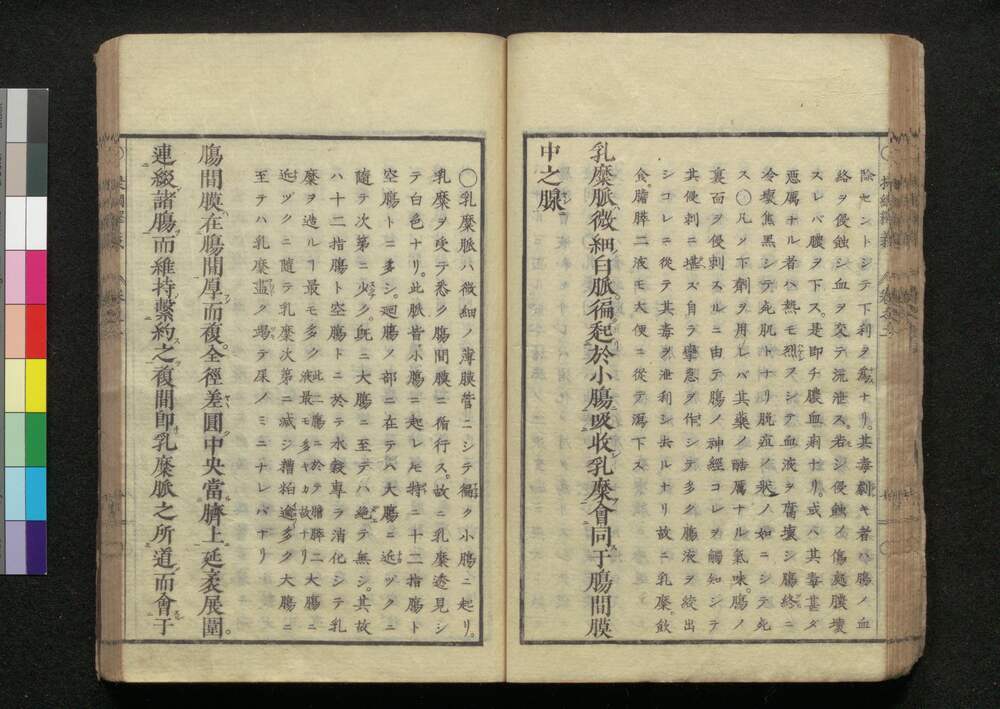 除セントシテ下利ヲ爲スナリ。其毒劇キ者ハ腸ノ血
絡ヲ侵蝕シ血ヲ交テ流泄ス。若シ侵蝕ノ傷處膿壞
スレバ膿ヲ下ス。是即チ膿血痢ナリ。或ハ其毒甚ダ
悪厲ナル者ハ熱モ烈スシテ血液ヲ腐壞シ腸終ニ
冷壞焦黑シテ死肌トナリ脱疽ノ状ノ如ニシテ死
ス〇凡ソ下劑ヲ用レバ其藥ノ酷厲ナル氣味。腸ノ
裏面ヲ侵刺スルニ由テ腸ノ神經コレヲ觸知シテ
其侵刺ニ堪ズ自ラ攣急ヲ作シテ多ク腸液ヲ絞出
シコレニ從テ其毒ヲ泄利シ去ルナリ故ニ乳糜飲
食。膽膵二液モ大便ニ從テ瀉下ス
乳糜脈微細白脈。徧起於小腸吸收乳糜會同于腸間膜
中之腺
〇乳糜脈ハ微細ノ薄膜管ニシテ徧ク小腸ニ起リ。
乳糜ヲ受テ悉ク腸間膜ニ循行ス。故ニ乳糜透見シ
テ白色ナリ。此脈皆小腸ニ起レ𪜈特ニ十二指腸ト
空腸トニ多シ。廻腸ノ部ニ在テハ大腸ニ近ヅクニ
隨テ次第ニ少ク。既ニ大腸ニ至テハ絶テ無シ。其故
ハ十二指腸ト空腸トニ於テ水穀専ラ消化シテ乳
糜ヲ造ルヿ最モ多ク此二腸ニ於テ膽膵二液最モ多キガ故ナリ大腸ニ
近ヅクニ隨テ乳糜次第ニ減ジ糟粕途多ク大腸ニ
至テハ乳糜盡ク竭テ屎ノミニナレバナリ
腸間膜在腸間厚而複。全徑差圓中央當臍上延袤展圍。
連綴諸腸而維持繫約之複間即乳糜脈之所道而會于